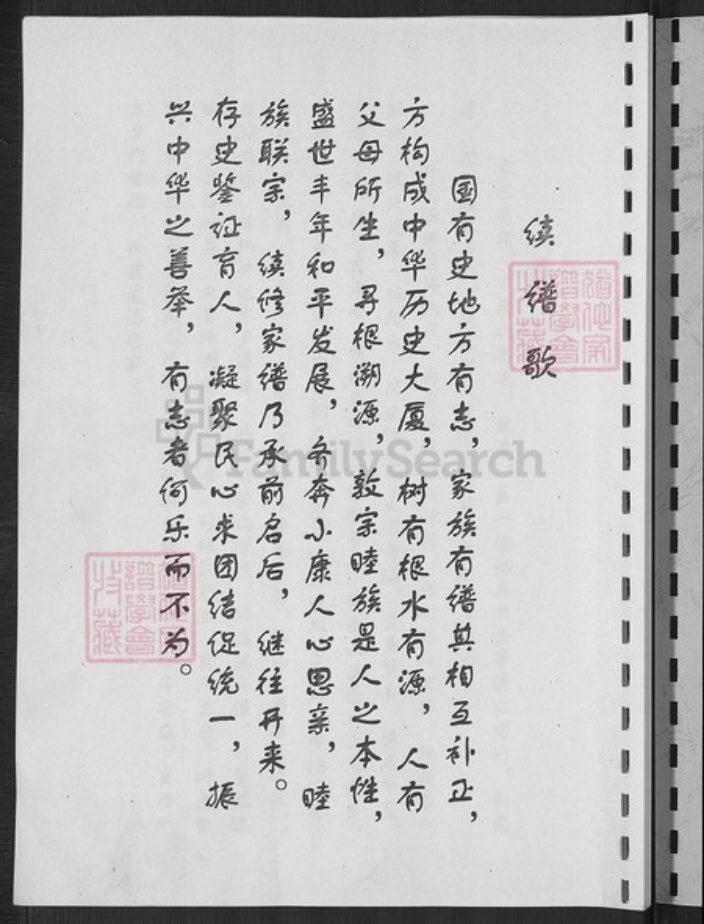 续谱歌
国有史地方有志，家族有谱其相互补正，
方构成中华历史大厦，树有根水有源，人有
父母所生，寻根溯源，敦宗睦族是人之本性，
盛世丰年和平发展，齐奔小康人心思亲，睦
族联宗，续修家谱乃承前启后，继往开来。
存史鉴证育人，凝聚民心来团结促统一，振
兴中华之善举，有志者何乐而不为。
FamilySearch